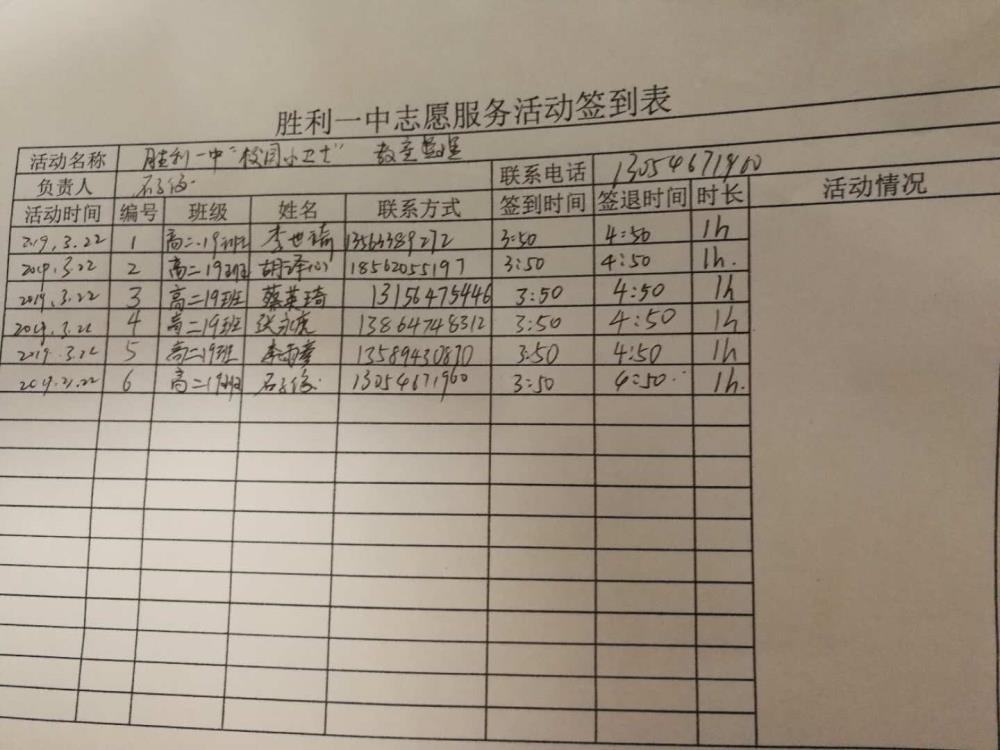 胜利一中志愿服务活动签到表
活动名称 胜利一中“校园小卫士” 教室整理
负责人 联系电话 13054671960 活动情况
活动时间 编号 班级 姓名 联系方式 签到时间 签退时间 时长
2019.3.22 1 高二.19班 李世琦 13563389272 3:50 4:50 1h
2019.3.22 2 高二19班 胡泽 18562055197 3:50 4:50 1h.
2019.3.22 3 高二19班 蔡英琦 13156475446 3:50 4:50 1h
2019.3.22 4 高二19班 张永虎 13864748312 3:50 4:50 1h
2019.3.22 5 高二19班 13589430870 3:50 4:50 1h
6 高二19班 13054671960 3:50 4:50. 1h.